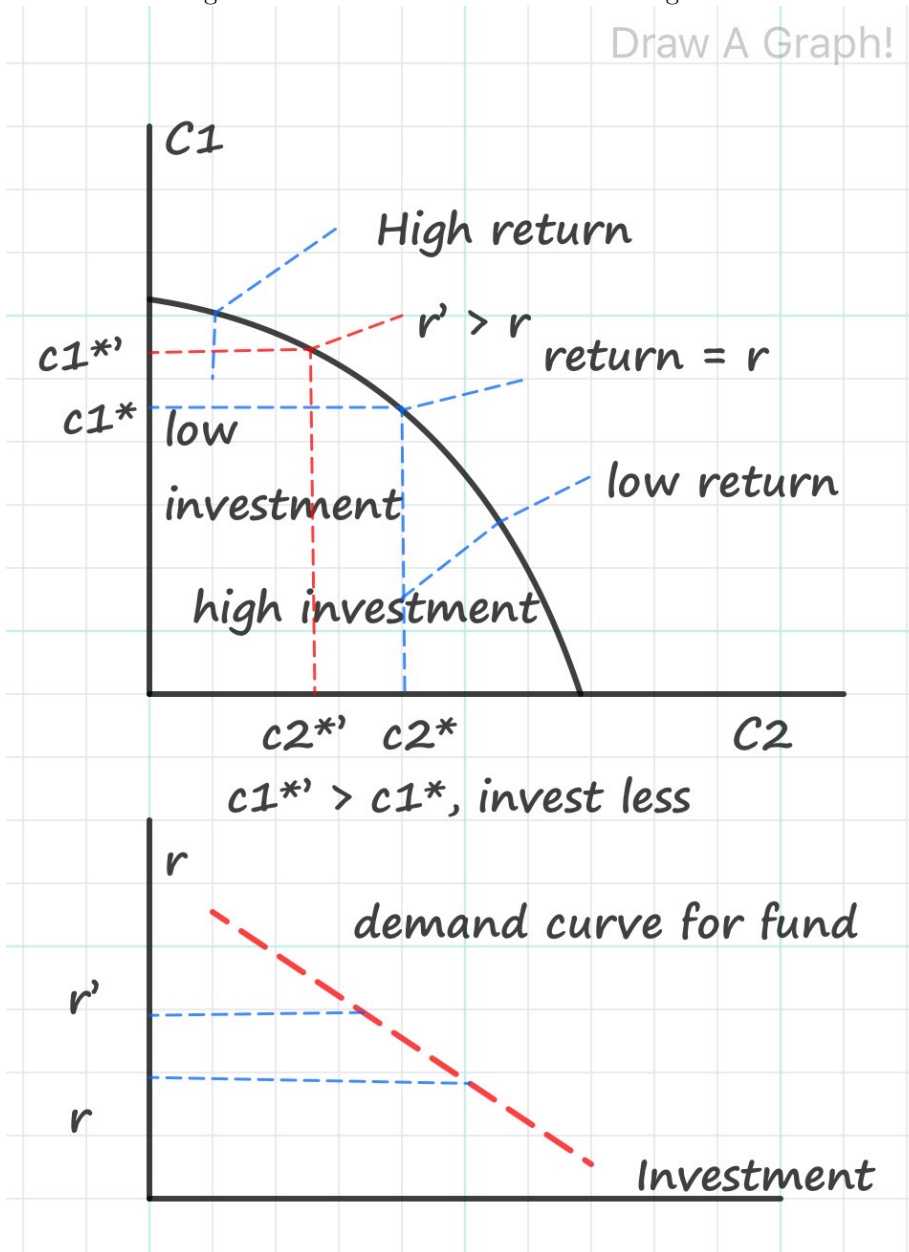 Draw A Graph!
C1
High return
r' > r
c1*'
return = r
c1*
low
investment
low return
high investment
c2*'
c2*
C2
c1*' > c1*, invest less
r
demand curve for fund
r'
r
Investment